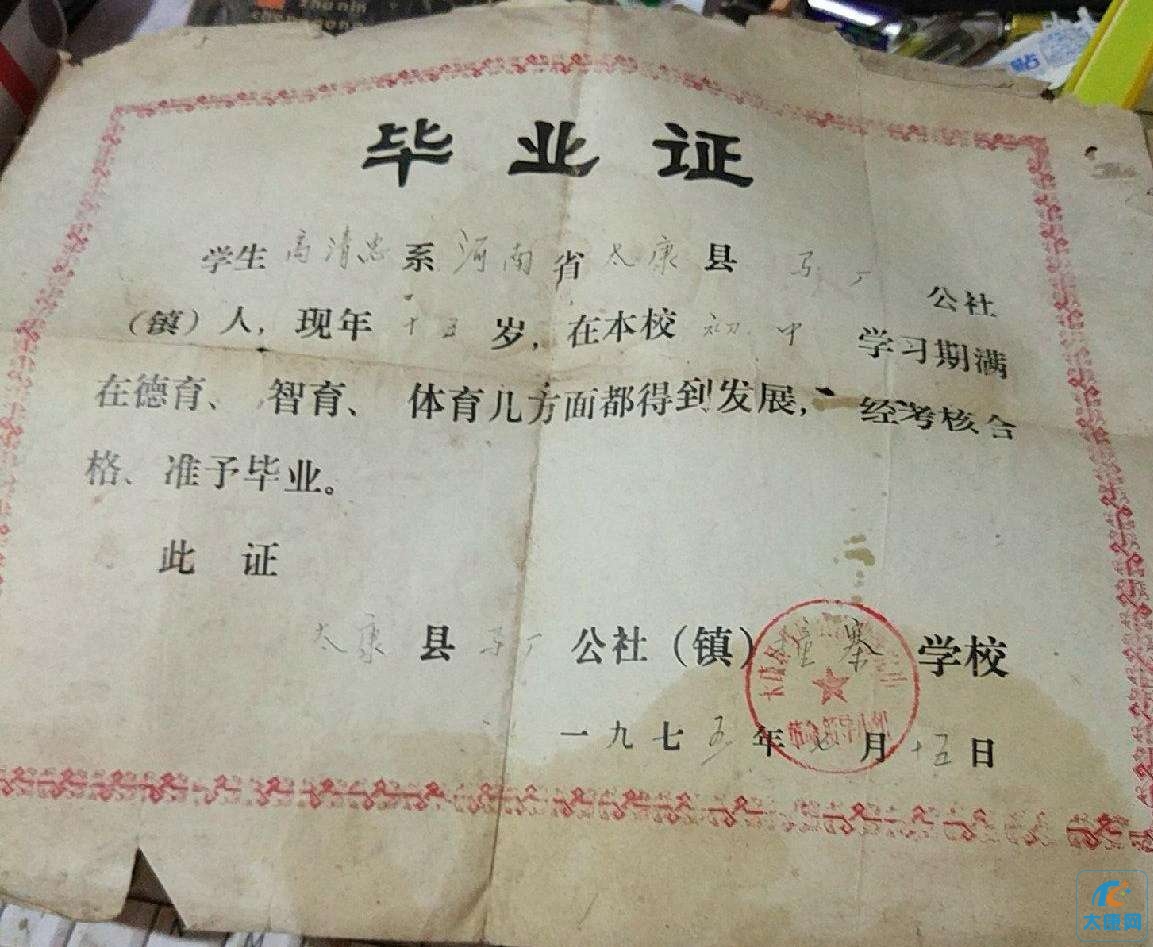 zhunin
毕业证
学生高清忠系河南省太康县马厂公社
（镇）人，现年十五岁，在本校初中学习期满
在德育、智育、体育几方面都得到发展，经考核合
格、准予毕业。
此证
太康县马厂公社（镇）寨学校
一九七五年七月十五日
贴
太康网